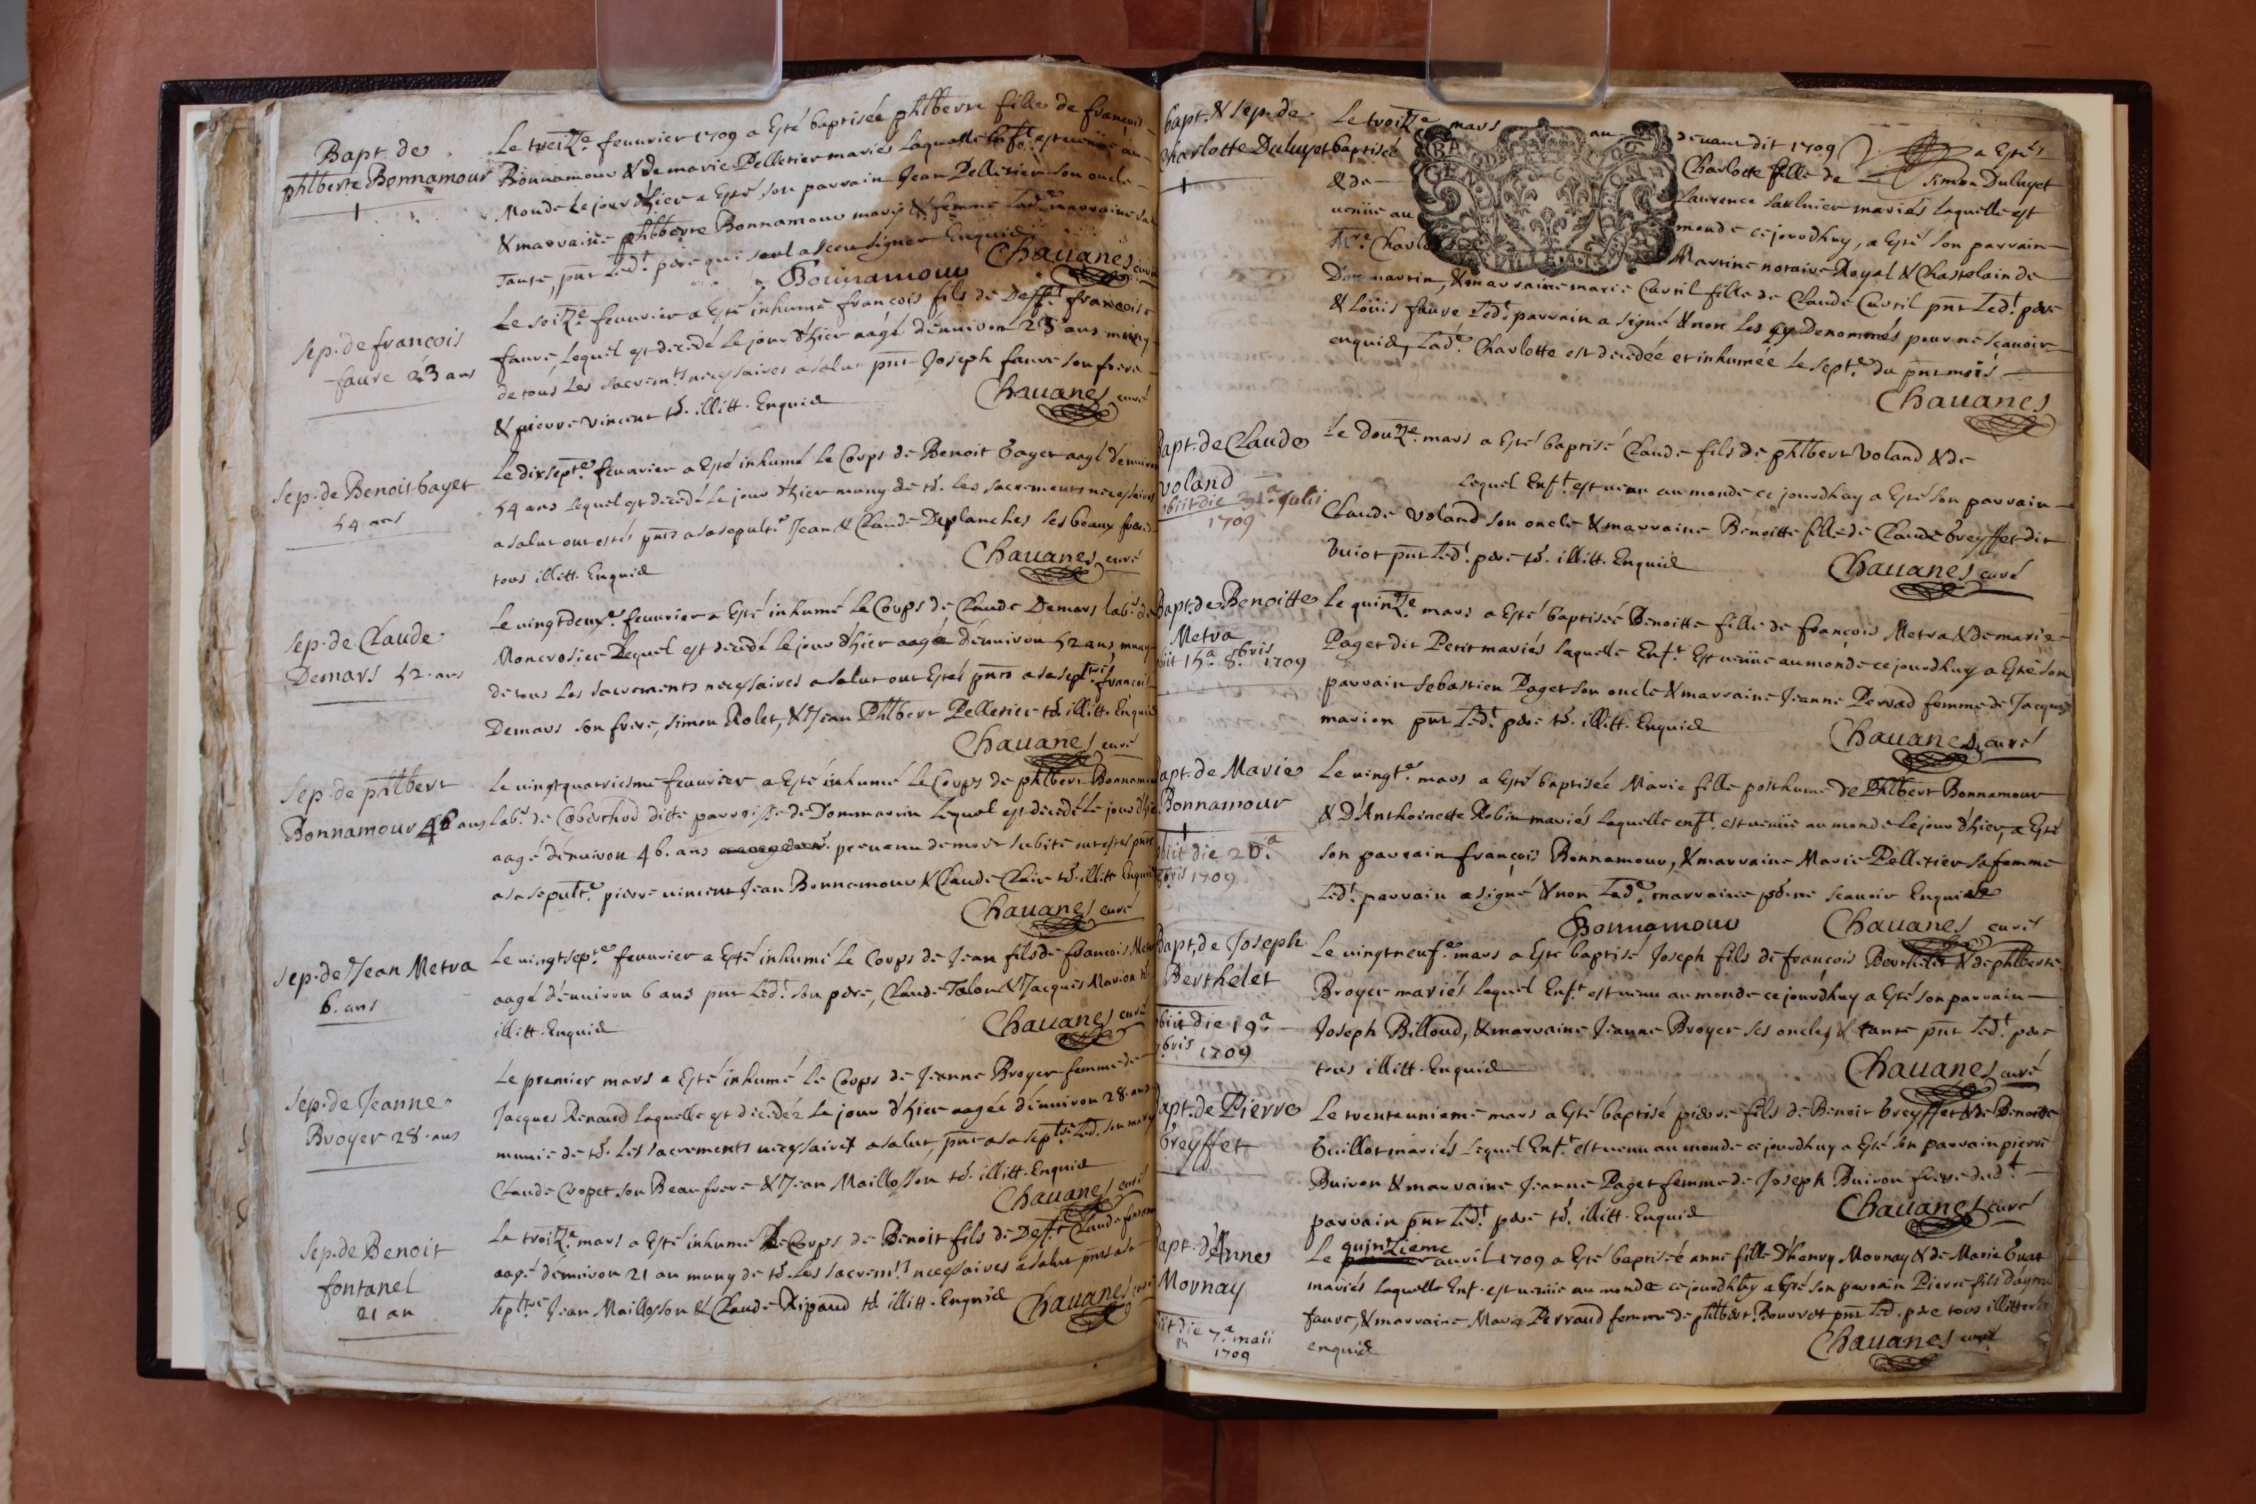 Bapt. de
phlberte Bonnamour
Le treize fevurier 1709 a Esté baptisée phlberte fille de francois
Bonnamour & de marie Pelletier mariés laquelle Enft est venüe au
Monde le jour d'hier a Esté son parrain Jean Pelletier son oncle
& marraine phlberte Bonnamour
Tante, pnt led.t père qui seul a sceu signer Enquis
Bonnamour Chauanes curé
Sep. de francois
faure 23 ans
Le seize feuurier a Esté inhumé francois fils de Deff.t francois
faure lequel est decedé le jour d'hier aagé d'enuiron 23 ans muny
de tous les sacrem.ts necessaires a salut pnt Joseph faure son frere
& pierre vincent ts. illitt. Enquis
Chauanes curé
Sep. de Benoit Gayet
54 ans
Le dixsept.e feuurier a Esté inhumé le Corps de Benoit Gayet aagé d'enuiron
54 ans lequel est decedé le jour d'hier muny de ts. les sacrements necessaires
a salut ont estés pnts a sa sepult.e Jean & Claude Deplanches ses beaux freres
tous illitt. Enquis
Chauanes curé
Sep. de Claude
Demars 52 ans
Le vingtdeux.e feuurier a Esté inhumé le Corps de Claude Demars lab.r de
Moncrosier lequel est decedé le jour d'hier aagé d'enuiron 52 ans, muny
de tous les sacrements necessaires a salut ont Estés pnts a sa sept.re francois
Demars son frere, Simon Rolet, & Jean Phlbert Pelletier ts. illitt. Enquis
Chauanes curé
Sep. de phlbert
Bonnamour 46 ans
Le vingtquatriesme feuurier a Esté inhumé le Corps de phlbert Bonnamour
lab.r de Coberthod dicte parroisse de Dommartin lequel est decedé le jour d'hier
aagé d'enuiron 46. ans preuenu de mort subite ont estés pnts
a sa sepult.e pierre vincent Jean Bonnamour & Claude Clair ts. illitt Enquis
Chauanes curé
Sep. de Jean Metra
6. ans
Le vingtsept.e feuurier a Esté inhumé le Corps de Jean fils de francois Metra
aagé d'enuiron 6 ans pnt led.t son père, Claude Talon & Jacques Marion ts.
illitt. Enquis
Chauanes curé
Sep. de Jeanne
Broyer 28. ans
Le premier mars a Esté inhumé le Corps de Jeanne Broyer femme de
Jacques Renaud laquelle est decedée le jour d'hier aagée d'enuiron 28. ans
munie de ts. les sacrements necessaires a salut, pnt a sa sept.re led. son mary
Claude Cropet son Beaufrere & Jean Maillosson ts. illitt. Enquis
Chauanes curé
Sep. de Benoit
fontanel
21 an
Le troiz.e mars a Esté inhumé le Corps de Benoit fils de Deff.t Claude fontanel
aagé d'enuiron 21 an muny de ts. les sacrem.ts necessaires a salut pnts a sa
sept.re Jean Maillosson & Claude Ripaud ts. illitt. Enquis
Chauanes curé
bapt. & Sep. de
Charlotte Duluyet
Le troiz.e mars au deuant dit 1709 a Esté
baptisée Charlotte fille de Simon Duluyet
& de Laurence Saulnier mariés laquelle est
venüe au monde ce jourdhuy, a Esté son parrain
M.re Charles Martine notaire Royal & Chastelain de
Dommartin, & marraine marie Curil fille de Claude Curil pnt led.t père
& Loüis faure led.t parrain a signé & non les cy denommés pour ne scauoir
enquis, lad.e Charlotte est decedée et inhumée le sept.e du pnt mois
Chauanes
Bapt. de Claude
Voland
obiit die 31.a Julii
1709
Le douze mars a Esté baptisé Claude fils de phlbert Voland & de
Lequel Enf.t est venu au monde ce jourdhuy a Esté son parrain
Claude Voland son oncle & marraine Benoitte fille de Claude Greyffet dit
Guiot pnt led.t père ts. illitt. Enquis
Chauanes curé
Bapt. de Benoitte
Metra
obiit 15.a 8.bris 1709
Le quinze mars a Esté baptisée Benoitte fille de francois Metra & de marie
Paget dit Petit mariés laquelle Enf.t Est venüe au monde ce jourdhuy a Esté son
parrain Sebastien Paget son oncle & marraine Jeanne Perrad femme de Jacques
marion pnt led.t père ts. illitt. Enquis
Chauanes curé
Bapt. de Marie
Bonnamour
obiit die 20.a
1709
Le vingt.e mars a Esté baptisée Marie fille posthume de Phlbert Bonnamour
& D'Anthoinette Robin mariés laquelle enf.t est venüe au monde le jour d'hier, a Esté
son parrain francois Bonnamour, & marraine Marie Pelletier sa femme
led.t parrain a signé & non lad.e marraine po.r ne scauoir Enquise
Bonnamour Chauanes curé
Bapt. de Joseph
Berthelet
obiit die 19.a
bris 1709
Le vingtneuf.e mars a Esté baptisé Joseph fils de francois Berthelet & de phlberte
Broyer mariés lequel Enf.t est venu au monde ce jourdhuy a Esté son parrain
Joseph Billoud, & marraine Jeanne Broyer ses oncles & tante pnt led.t père
tous illitt. Enquis
Chauanes curé
Bapt. de Pierre
Greyffet
Le trenteunieme mars a Esté baptisé pierre fils de Benoit Greyffet & de Benoitte
Guillot mariés lequel Enf.t est venu au monde ce jourdhuy a Esté son parrain pierre
Buiron & marraine Jeanne Paget femme de Joseph Buiron frere dud.t
parrain pnt led.t père ts. illitt. Enquis
Chauanes curé
Bapt. d'Anne
Mornay
obiit die 7.a maii
1709
Le quinzieme auril 1709 a Esté baptisée anne fille d'henry Mornay & de Marie Guat
mariés laquelle Enf. est venüe au monde ce jourdhuy a Esté son parrain Pierre fils d'aymé
faure, & marraine Marie Perraud femme de phlbert Bourret pnt led. père tous illitterés
enquis
Chauanes curé